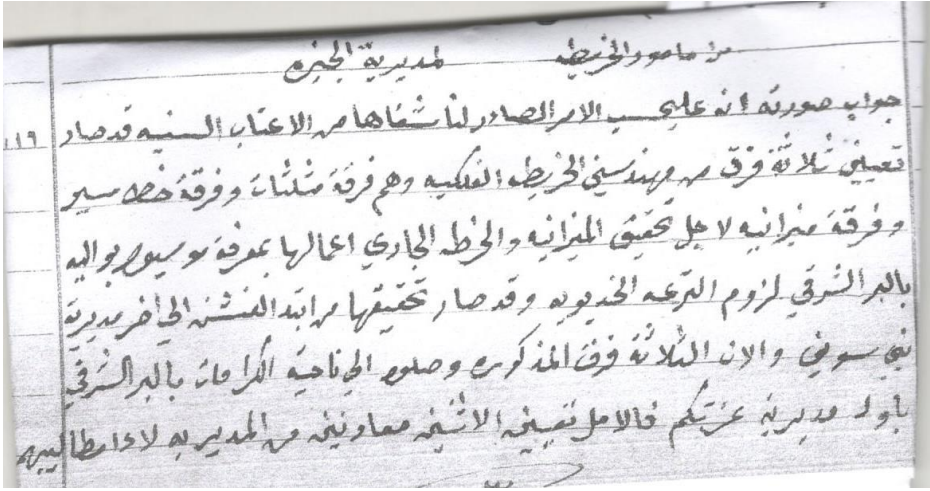 من مامور الخريطه لمديرية الجيزه
١١٩
جواب صورته انه على حسب الامر الصادر لنا شفاها من الاعتاب السنيه قد صار
تعيين ثلاثة فرق من مهندسين الخريطه الفلكيه وهم فرقة مثلثات وفرقة خط سير
وفرقة ميزانيه لاجل تحقيق الميزانيه والخرطه الجاري اعمالها بمعرفة موسيور بواليه
بالبر الشرقي لزوم الترعه الخديويه وقد صار تحقيقها من ابتد الفشن الى اخر مديرية
بني سويف والان الثلاثة فرق المذكوره وصلوا الى ناحية الكرامات بالبر الشرقي
باول مديرية عزتكم فالامل تعيين الاثنين معاونين من المديريه لاعطا